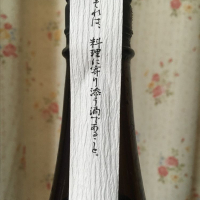 それは、料理に寄り添う酒であること。